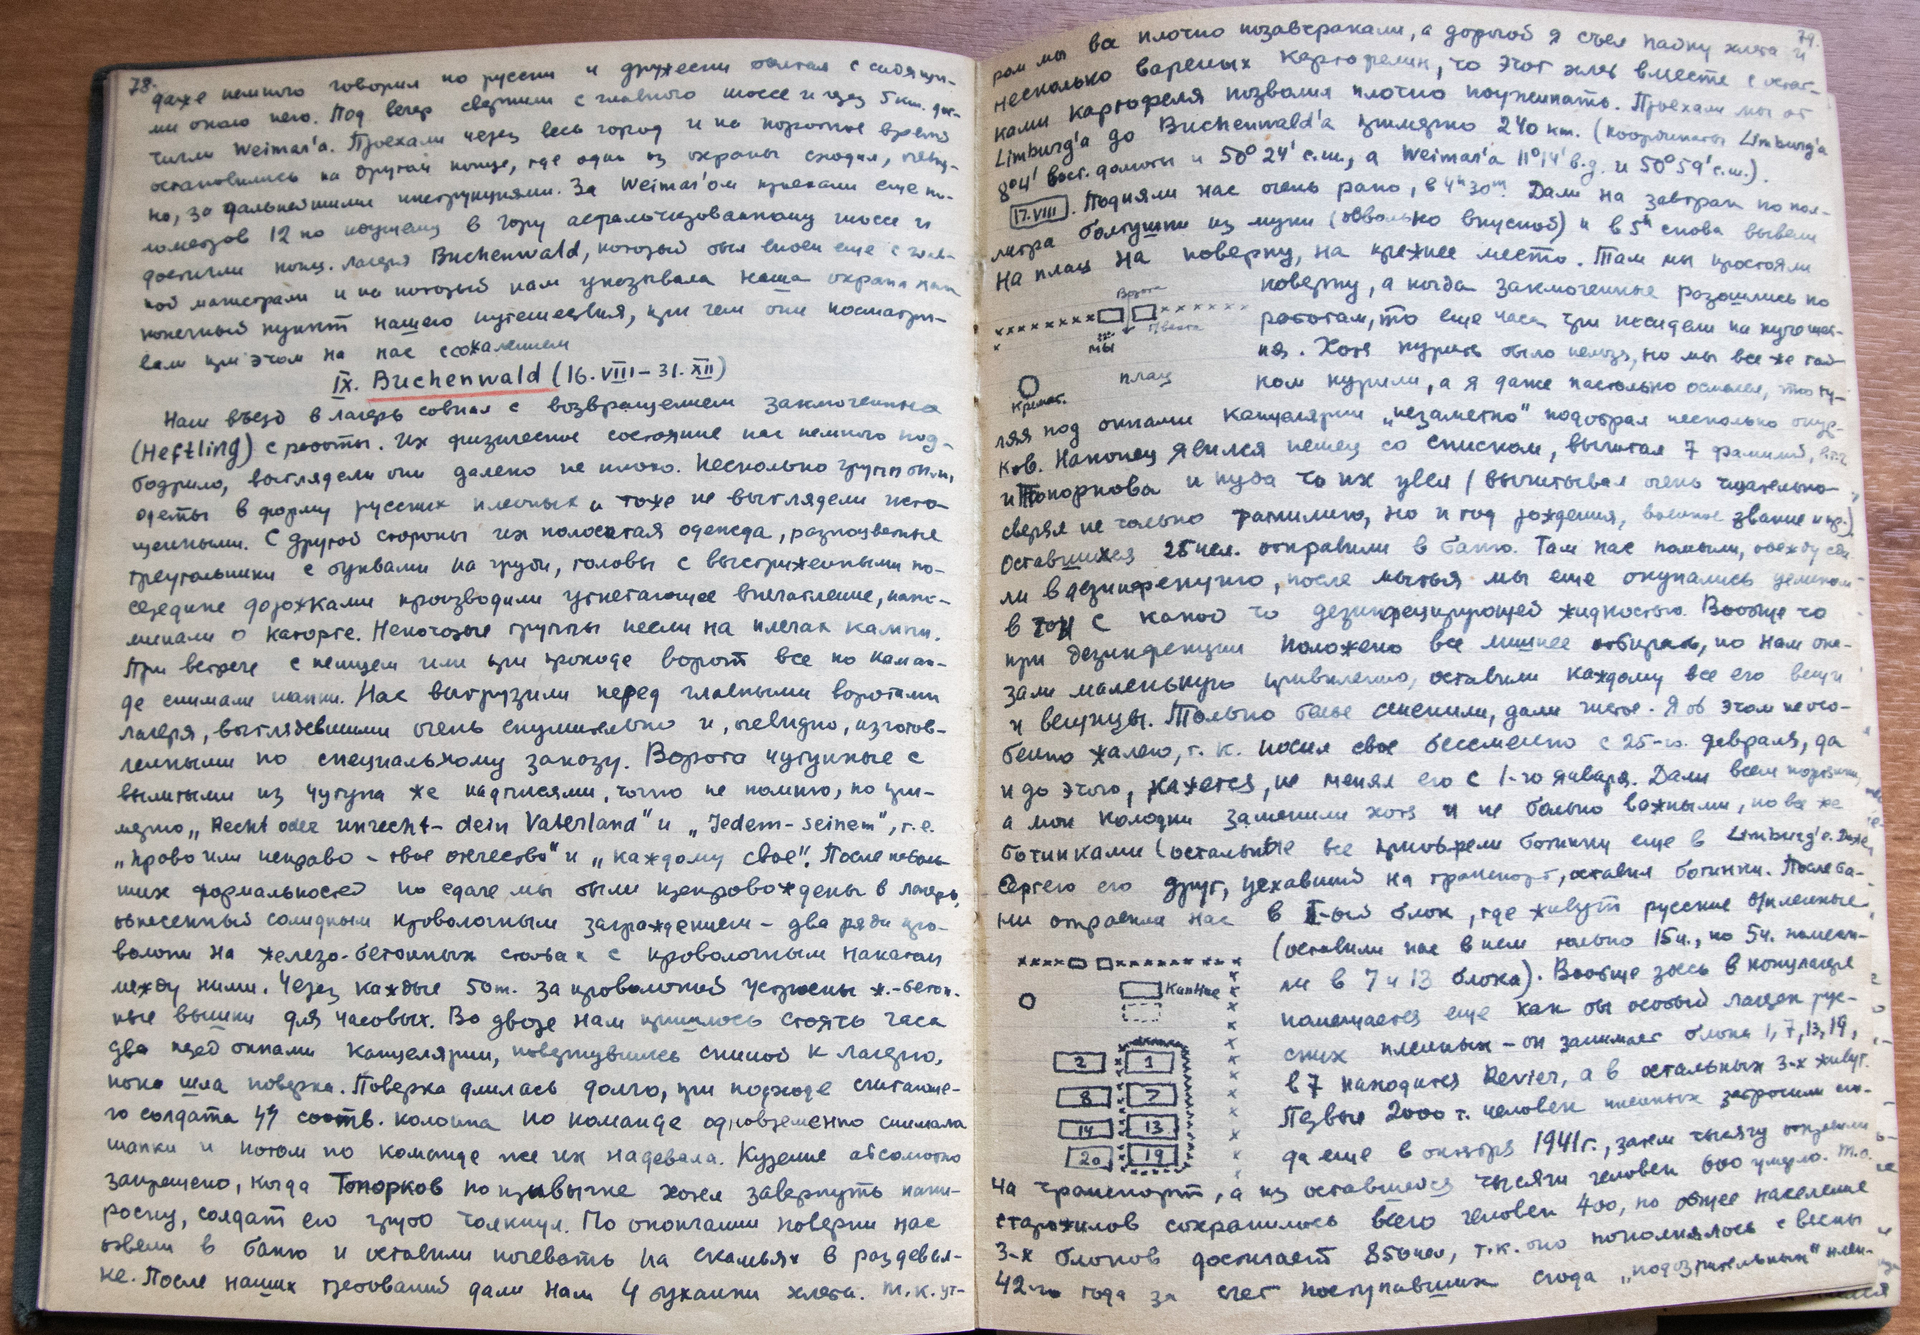 78.
даже немного говорил по русски и дружески болтал с сидящи-
ми около него. Под вечер свернули с главного шоссе и через 5 км. дос-
тигли Weimar'а. Проехали через весь город и на короткое время
остановились на другом конце, где один из охраны сходил, очевид-
но, за дальнейшими инструкциями. За Weimar'ом проехали еще ки-
лометров 12 по идущему в гору асфальтизованному шоссе и
достигли конц. лагеря Buchenwald, который был виден еще с глав-
ной магистрали и на который нам указывала наша охрана как
конечный пункт нашего путешествия, при чем они посматри-
вали при этом на нас с сожалением
IX. Buchenwald (16.VIII – 31.XII)
Наш въезд в лагерь совпал с возвращением заключенных
(Heftling) с работы. Их физическое состояние нас немного под-
бодрило, выглядели они далеко не плохо. Несколько групп были
одеты в форму русских пленных и тоже не выглядели исто-
щенными. С другой стороны их полосатая одежда, разноцветные
треугольники с буквами на груди, головы с выстриженными по-
середине дорожками производили угнетающее впечатление, напо-
минали о каторге. Некоторые группы несли на плечах камни.
При встрече с немцем или при проходе ворот все по коман-
де снимали шапки. Нас выгрузили перед главными воротами
лагеря, выглядевшими очень внушительно и, очевидно, изготов-
ленными по специальному заказу. Ворота чугунные с
вылитыми из чугуна же надписями, точно не помню, но при-
мерно „Recht oder unrecht – dein Vaterland" и „Jedem – seinem", т.е.
„право или неправо – твое отечество" и „каждому свое". После неболь-
ших формальностей по сдаче мы были препровождены в лагерь,
обнесенный солидным проволочным заграждением – два ряда про-
волоки на железо-бетонных столбах с проволочным накатом
между ними. Через каждые 50 m. за проволокой устроены ж.-бетон-
ные вышки для часовых. Во дворе нам пришлось стоять часа
два перед окнами канцелярии, повернувшись спиной к лагерю,
пока шла поверка. Поверка длилась долго, при подходе считающе-
го солдата SS соотв. колонна по команде одновременно снимала
шапки и потом по команде же их надевала. Курение абсолютно
запрещено, когда Топорков по привычке хотел завернуть папи-
роску, солдат его грубо толкнул. По окончании поверки нас
отвели в баню и оставили ночевать на скамьях в раздевал-
ке. После наших требований дали нам 4 буханки хлеба. Т.к. ут-
79.
ром мы все плотно позавтракали, а дорогой я съел пайку хлеба и
несколько вареных картофелин, то этот хлеб вместе с остат-
ками картофеля позволил плотно поужинать. Проехали мы от
Limburg'а до Buchenwald'а примерно 240 km. (координаты Limburg'а
8°4' вост. долготы и 50°24' с.ш., а Weimar'а 11°14' в.д. и 50°59' с.ш.).
17.VIII. Подняли нас очень рано, в 4ʰ30ᵐ. Дали на завтрак по пол-
литра болтушки из муки (довольно вкусной) и в 5ʰ снова вывели
на плац на поверку, на прежнее место. Там мы простояли
поверку, а когда заключенные разошлись по
работам, то еще часа три посидели на
Хотя курить было нельзя, но мы все же тай-
ком курили, а я даже настолько осмелел, что гу-
Ворота
мы
плац
Кремат.
ляя под окнами канцелярии „незаметно" подобрал несколько окур-
ков. Наконец явился немец со списком, вычитал 7 фамилий, в т.ч.
и Топоркова и куда то их увел (вычитывал очень тщательно,
сверял не только фамилию, но и год рождения, военное звание и пр.).
Оставшихся 25 чел. отправили в баню. Там нас помыли, одежду сда-
ли в дезинфекцию, после мытья мы еще окунались целиком
в чан с какой то дезинфецирующей жидкостью. Вообще то
при дезинфекции положено все лишнее отбирать, но нам ока-
зали маленькую привилегию, оставили каждому все его вещи
и вещицы. Только белье сменили, дали чистое. Я об этом не осо-
бенно жалею, т.к. носил свое бессменно с 25-го февраля, да
и до этого, кажется, не менял его с 1-го января. Дали всем
а мои колодки заменили хотя и не больно важными, но все же
ботинками (остальные все приобрели ботинки еще в Limburg'е. Даже
Сергею его друг, уехавший на транспорт, оставил ботинки. После ба-
ни отправили нас в I-ый блок, где живут русские пленные
(оставили нас в нем только 15 ч., по 5 ч. помести-
ли в 7 и 13 блока). Вообще здесь в концлагере
помещается еще как бы особый лагерь рус-
ских пленных – он занимает блока 1, 7, 13, 19,
в 7 находится Revier, а в остальных 3-х живут.
Первые 2000 человек пленных забросили сю-
да еще в октябре 1941 г., затем тысячу отправили
Kantine
2 1
8 7
14 13
20 19
на транспорт, а из оставшейся тысячи человек 600 умерло. Т.о.
старожилов сохранилось всего человек 400, но общее население
3-х блоков достигает 850 чел, т.к. оно пополнялось с весны
42-го года за счет поступавших сюда „подозрительных" плен-